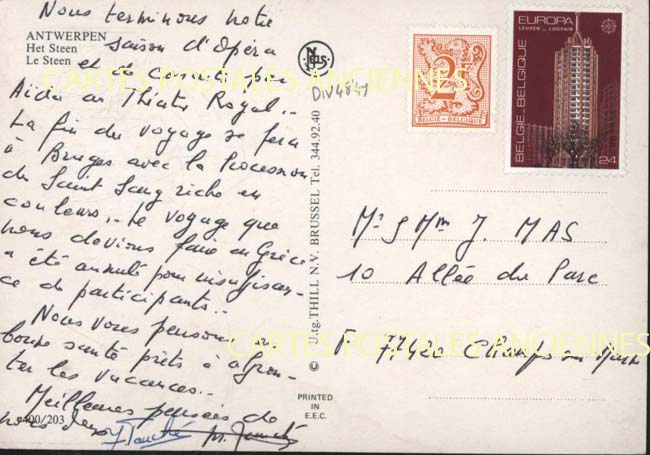 ANTWERPEN
Het Steen
Le Steen
Nous terminons notre
saison d'Opéra
et de concert par
Aïda au Théâtre Royal...
La fin du voyage se fera
à Bruges avec la Procession
du Saint Sang riche en
couleurs... Le voyage que
nous devions faire en Grèce
a été annulé pour insuffisan-
ce de participants...
Nous vous pensons en
bonne santé prêts à affron-
ter les vacances...
Meilleures pensées de
nous deux
e400/203
NELS
DIV4841
U.tg. THILL N.V. BRUSSEL Tel. 344.92.40
©
PRINTED
IN
E.E.C.
2F
BELGIE-BELGIQUE
EUROPA
LEUVEN - LOUVAIN
BELGIE-BELGIQUE
24
Mr & Mme J. MAS
10 Allée du Parc
F 77420 Champs sur
CARTES POSTALES ANCIENNES
CARTES POSTALES ANCIENNES